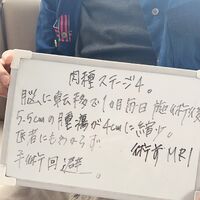 肉種ステージ4。
脳に転移で1ヶ月前施術後
5.5cmの腫瘍が4cmに縮少。
医者にもわからず
手術回避。
術前MRI